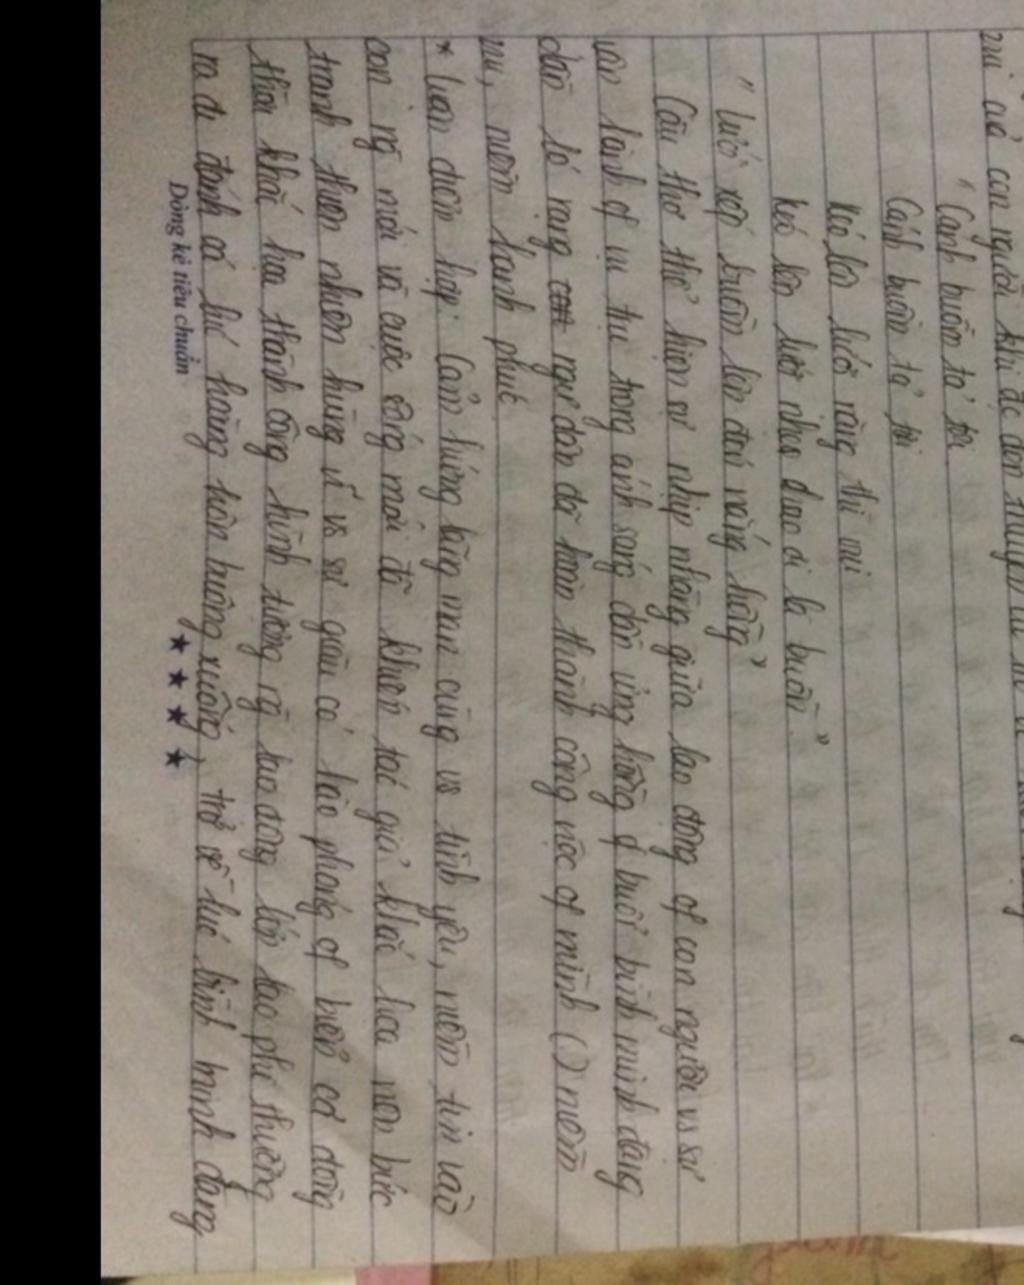 vui của con người khi đc đón thuyền
" Cánh buồm ta
Cánh buồm ta
Kéo lên lưới
kéo lên lưới như
" Lưới xếp buồm lên đón nắng hồng"
Câu thơ thể hiện sự nhịp nhàng giữa lao động of con người vs sự
vận hành of vũ trụ trong ánh sáng dần ửng hồng of buổi bình minh đang
dần ló rạng ngư dân đã hoàn thành công việc of mình () niềm
vui, niềm hạnh phúc
* Luận điểm hợp: Cảm hứng lãng mạn cùng vs tình yêu, niềm tin vào
con ng mới và cuộc sống mới đã khiến tác giả khắc họa nên bức
tranh thiên nhiên hùng vĩ vs sự giàu có hào phóng of biển cả đồng
thời khắc họa thành công hình tượng ng lao động lớn lao phi thường
ra đi đánh cá lúc hoàng hôn buông xuống, trở về lúc bình minh đang
Dòng kẻ tiêu chuẩn ★ ★ ★ ★